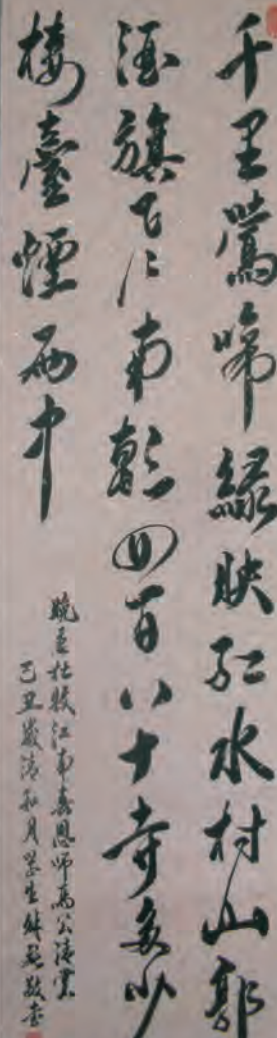 千里鶯啼緑映紅水村山郭
酒旗風南朝四百八十寺多少
樓臺煙雨中
晚唐杜牧江南春恩師公清賞
己丑歲清和月學生敬書